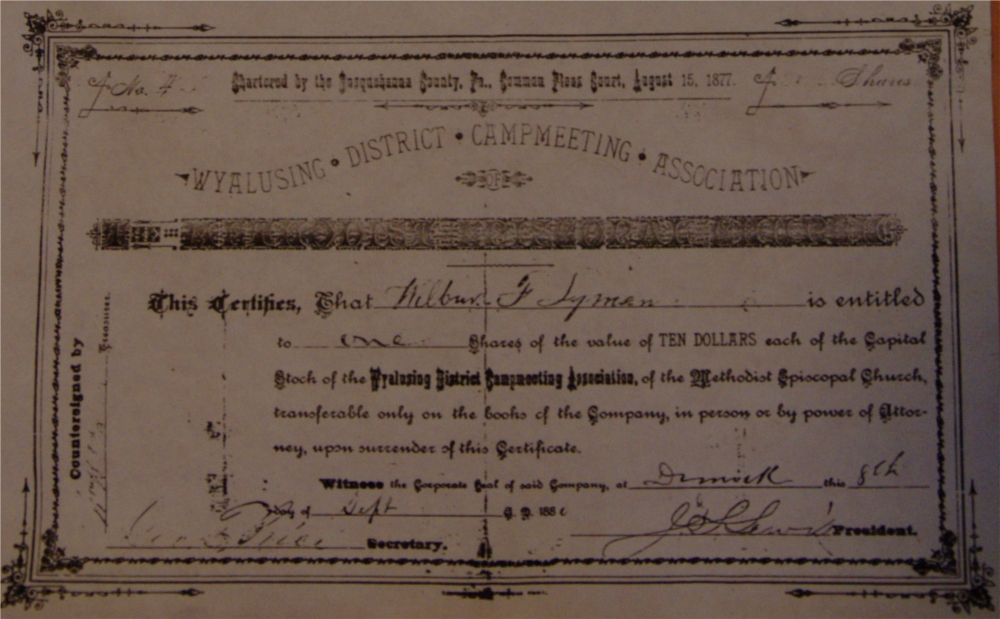 No. 4
Chartered by the Susquehanna County, Pa., Common Pleas Court, August 15, 1877.
Shares
WYALUSING • DISTRICT • CAMPMEETING • ASSOCIATION
OF
THE METHODIST EPISCOPAL CHURCH
This Certifies, That Wilbur F Lyman is entitled
to one Shares of the value of TEN DOLLARS each of the Capital
Stock of the Wyalusing District Campmeeting Association, of the Methodist Episcopal Church,
transferable only on the books of the Company, in person or by power of Attor-
ney, upon surrender of this Certificate.
Witness the Corporate Seal of said Company, at Dimock this 8th
day of Sept A. D. 188
Secretary.
President.
Countersigned by
Treasurer